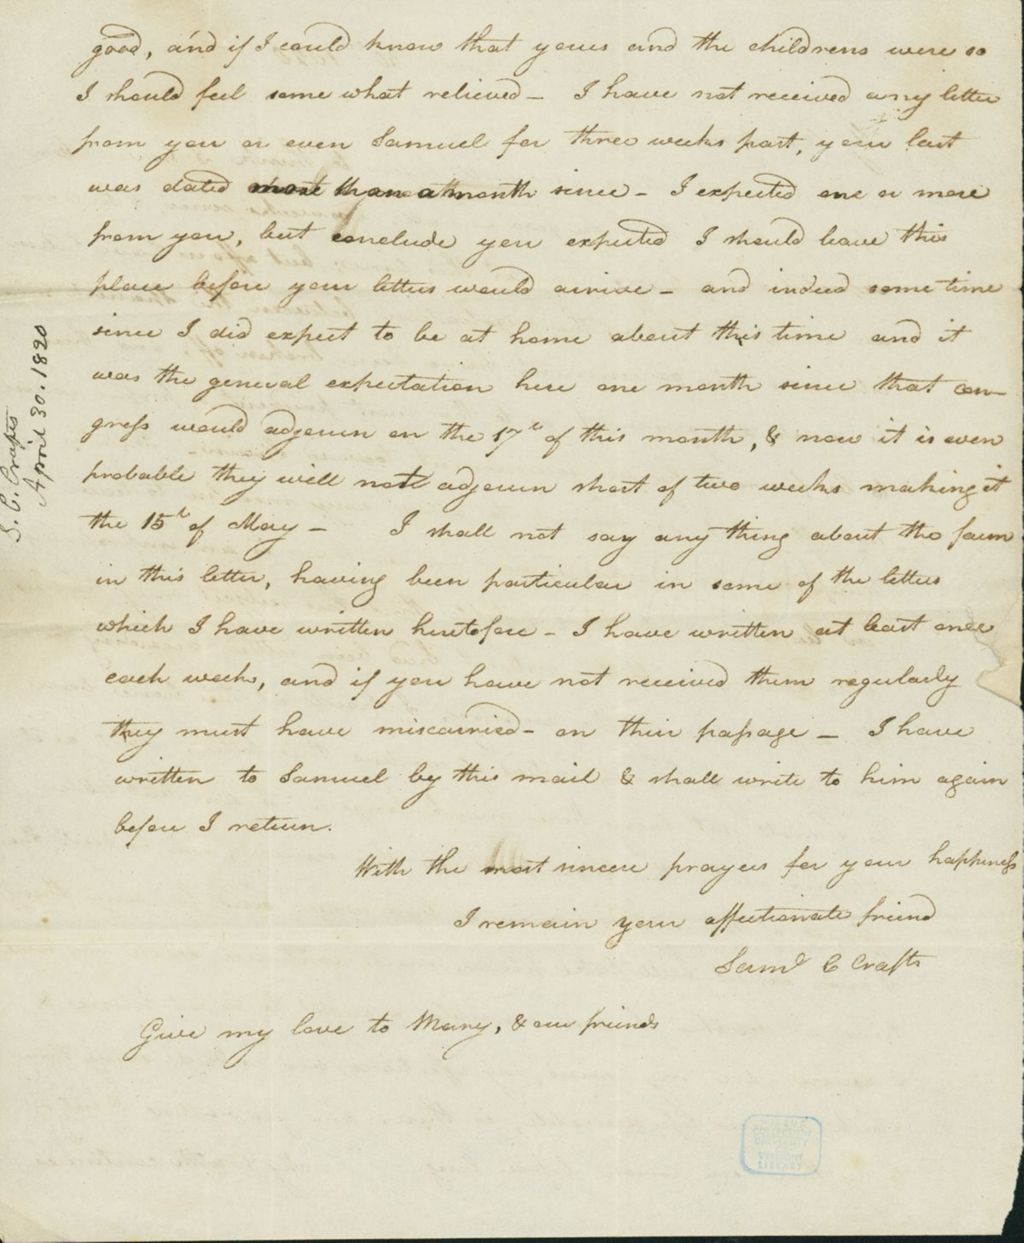 good, and if I could know that yours and the childrens were so
I should feel some what relieved – I have not received any letter
from you or even Samuel for three weeks past, your last
was dated more than a month since – I expected one or more
from you, but conclude you expected I should leave this
place before your letters would arrive – and indeed some time
since I did expect to be at home about this time and it
was the general expectation here one month since that con-
gress would adjourn on the 17th of this month, & now it is even
probable they will not adjourn short of two weeks making it
the 15th of May – I shall not say any thing about the farm
in this letter, having been particular in some of the letters
which I have written heretofore – I have written at least once
each week, and if you have not received them regularly
they must have miscarried – on their passage – I have
written to Samuel by this mail & shall write to him again
before I return.
With the most sincere prayers for your happiness
I remain your affectionate friend
Saml C Crafts
Give my love to Mary, & our friends
S. C. Crafts
April 30. 1820
UNIVERSITY
VERMONT
LIBRARY